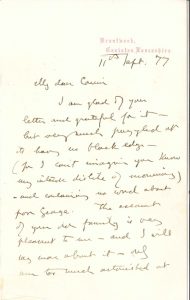 Brantwood,
Coniston, Lancashire.
11th Sept. 77
My dear Cousin
I am glad of your
letter and grateful for it –
but very much puzzled at
its having no black edge –
(for I can't imagine you know
my intense dislike of mourning)
– and containing no word about
poor George. The account
of your dear family is very
pleasant to me – and I will
say more about it – only
am too much astonished at